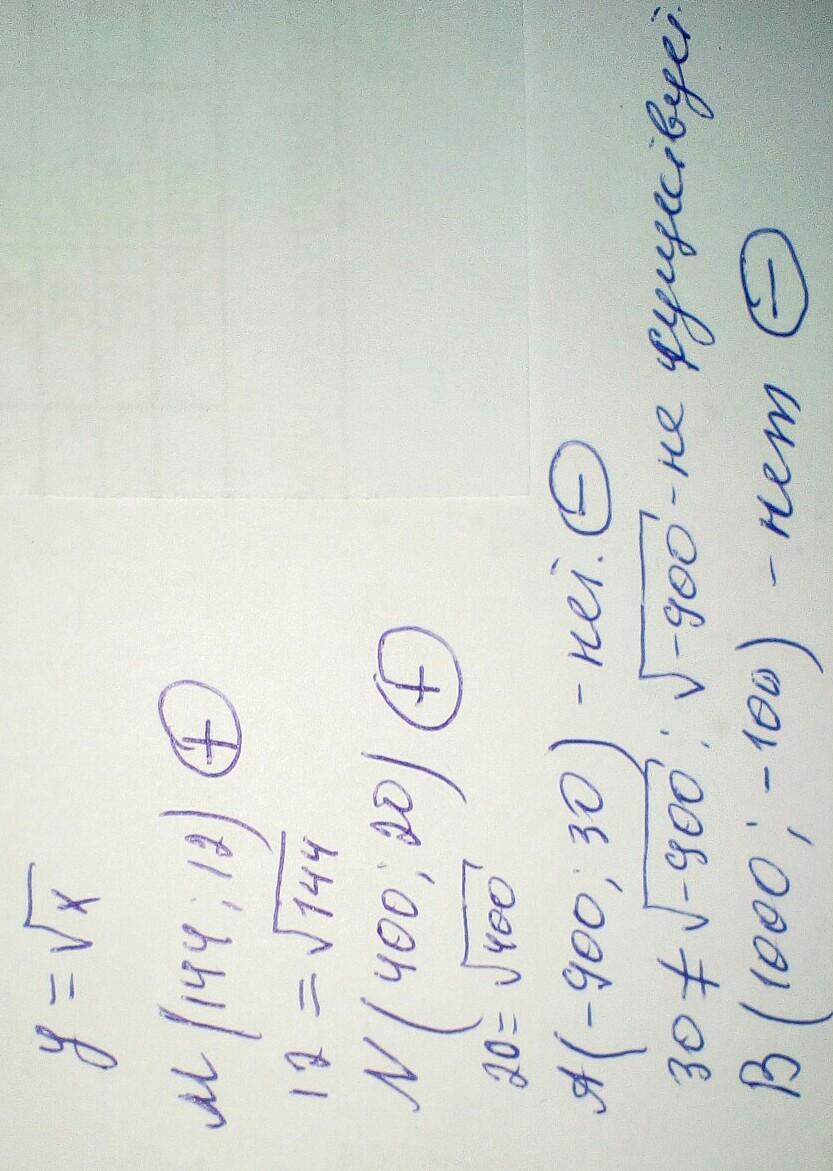 y = √x
M (144; 12) ⊕
12 = √144
N (400; 20) ⊕
20 = √400
A (-900; 30) - нет. ⊖
30 ≠ √-900; √-900 - не существует.
B (1000; -100) - нет ⊖